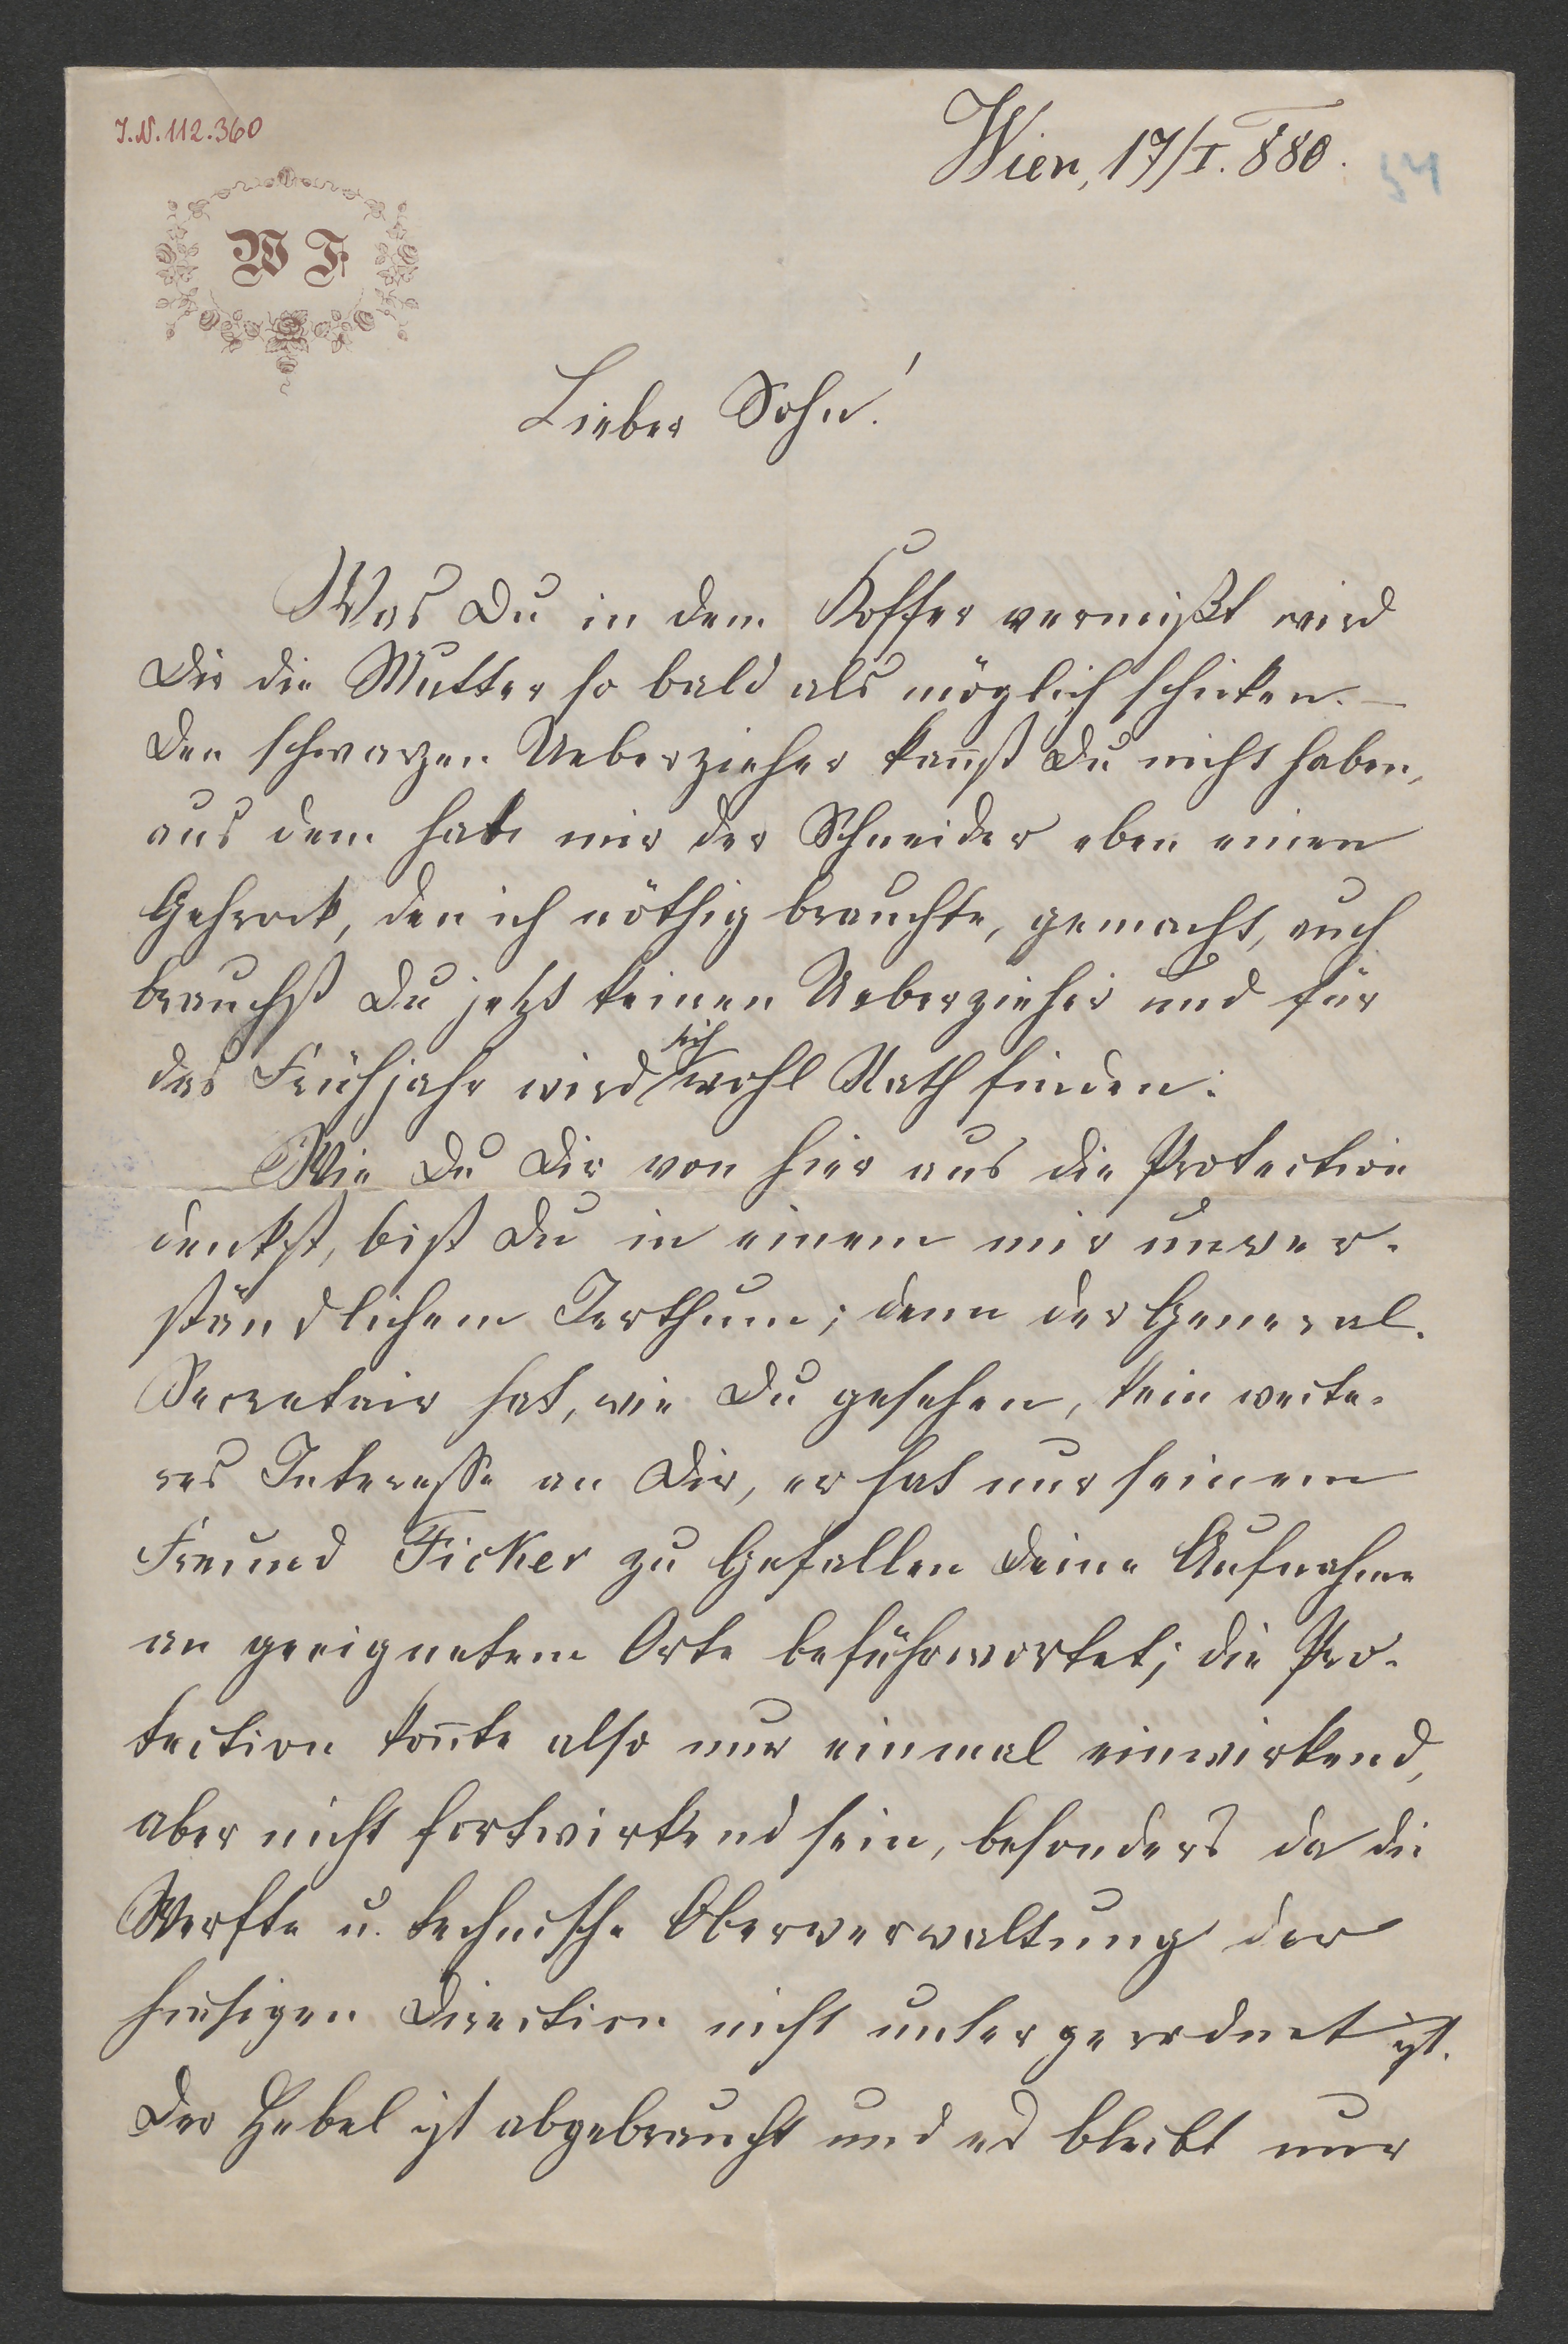 J.N. 112.360
Wien, 17/I. 880.
54
W F
Lieber Sohn!
Was Du in dem Koffer vermißt wird
Dir die Mutter so bald als möglich schicken. –
Den schwarzen Ueberzieher kan̄st Du nicht haben,
aus dem hat mir der Schneider eben einen
Gehrock, den ich nöthig brauchte, gemacht, auch
brauchst Du jetzt keinen Ueberzieher und für
das Frühjahr wird sich wohl Rath finden.
Wie Du Dir von hier aus die Protection
denkst, bist Du in einem mir unver-
ständlichem Irrthum; denn der General-
Secretair hat, wie Du gesehen, kein weite-
res Interesse an Dir, er hat nur seinem
Freund Ficker zu Gefallen Deine Aufnahme
an geeignetem Orte beführwortet; die Pro-
tection kon̄te also nur einmal einwirkend,
aber nicht fortwirkend sein, besonders da die
Werfte u. technische Oberverwaltung der
hiesigen Direction nicht untergeordnet ist.
Der Hebel ist abgebraucht und es bleibt nur